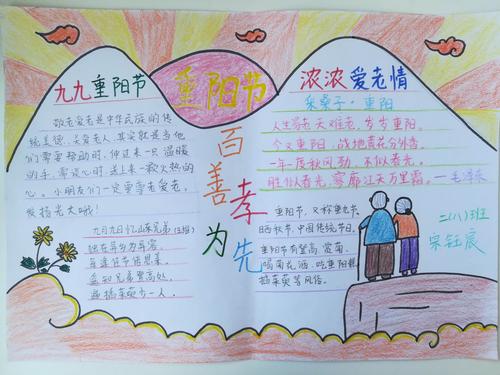 九九重阳节
敬老爱老是中华民族的传
统美德,关爱老人,其实就是当他
们需要帮助时,伸过来一只温暖
的手,寒冷时,送上来一颗火热的
心。小朋友们一定要尊老爱老,
发扬光大哦!
九月九日忆山东兄弟(王维)
独在异乡为异客,
每逢佳节倍思亲。
遥知兄弟登高处,
遍插茱萸少一人。
重阳节
百
善
孝
为
先
浓浓爱老情
采桑子·重阳
人生易老天难老,岁岁重阳。
今又重阳,战地黄花分外香。
一年一度秋风劲,不似春光。
胜似春光,寥廓江天万里霜。—毛泽东
重阳节,又称重九节、
晒秋节,中国传统节日。
重阳节有登高、赏菊、
喝菊花酒、吃重阳糕、
插茱萸等风俗。
二(八)班
宋钰宸